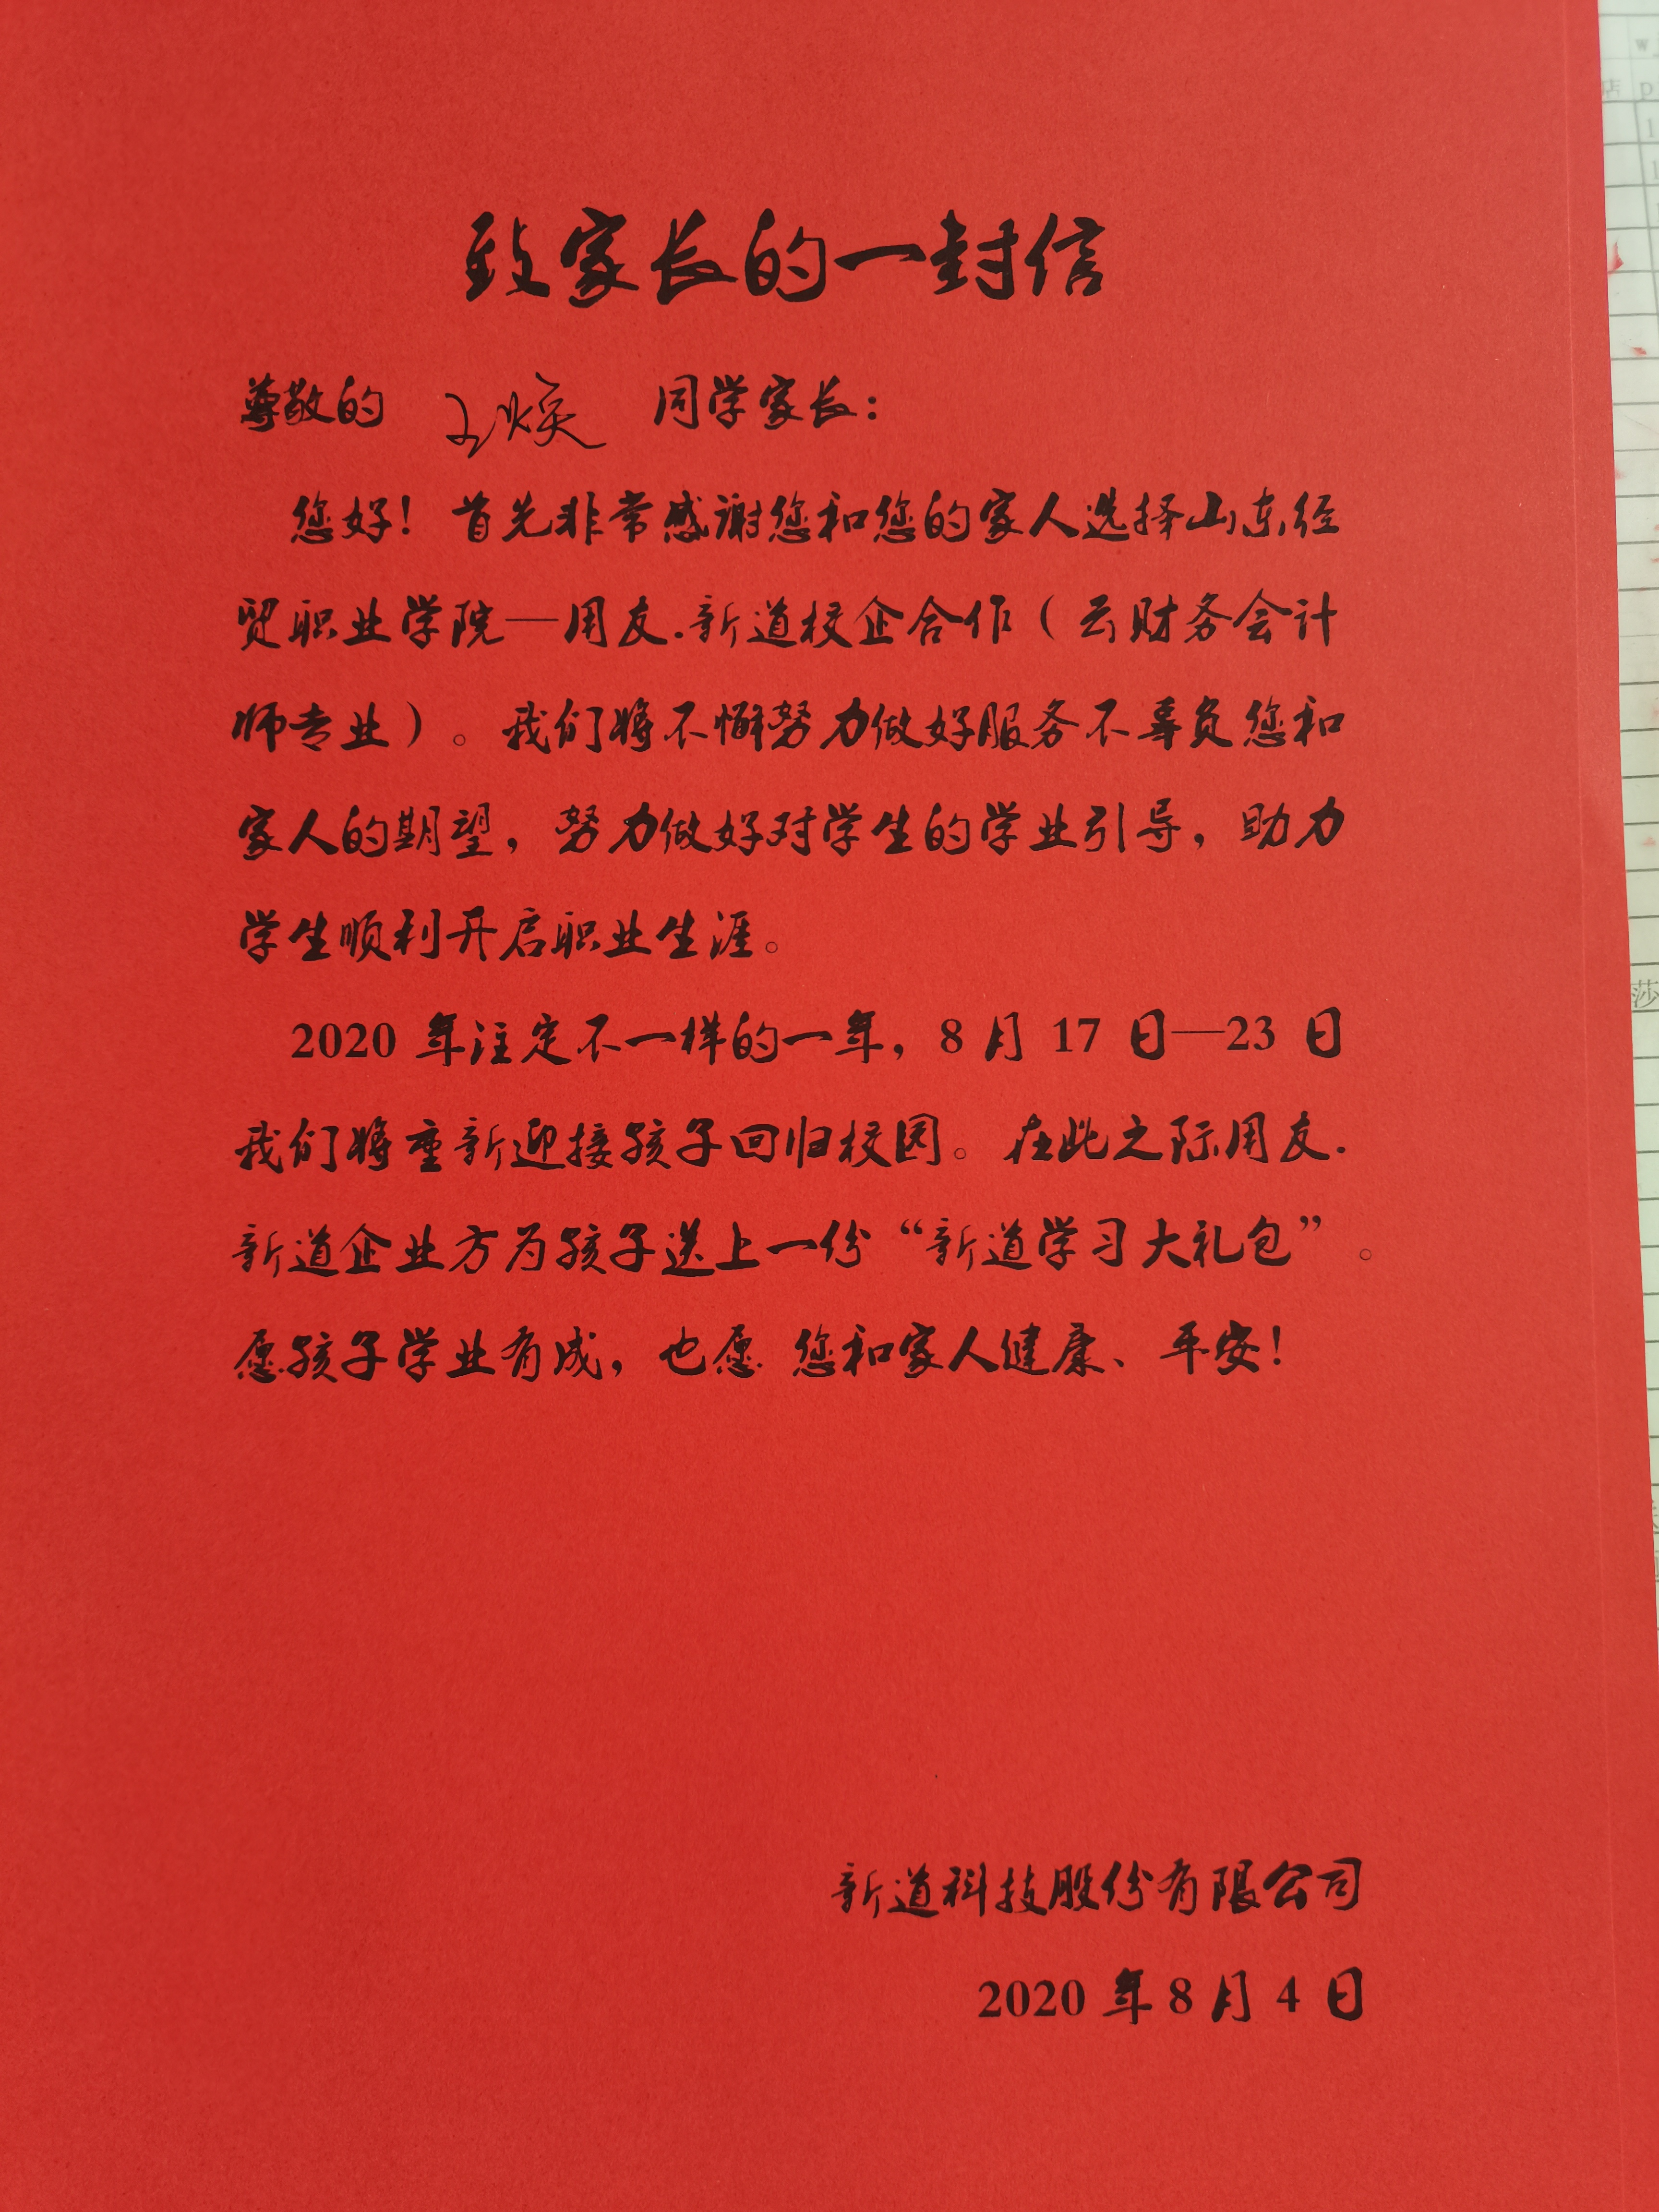 致家长的一封信
尊敬的 王焕 同学家长：
您好！首先非常感谢您和您的家人选择山东经
贸职业学院—用友.新道校企合作（云财务会计
师专业）。我们将不懈努力做好服务不辜负您和
家人的期望，努力做好对学生的学业引导，助力
学生顺利开启职业生涯。
2020 年注定不一样的一年，8 月 17 日—23 日
我们将重新迎接孩子回归校园。在此之际用友.
新道企业方为孩子送上一份“新道学习大礼包”。
愿孩子学业有成，也愿 您和家人健康、平安！
新道科技股份有限公司
2020 年 8 月 4 日